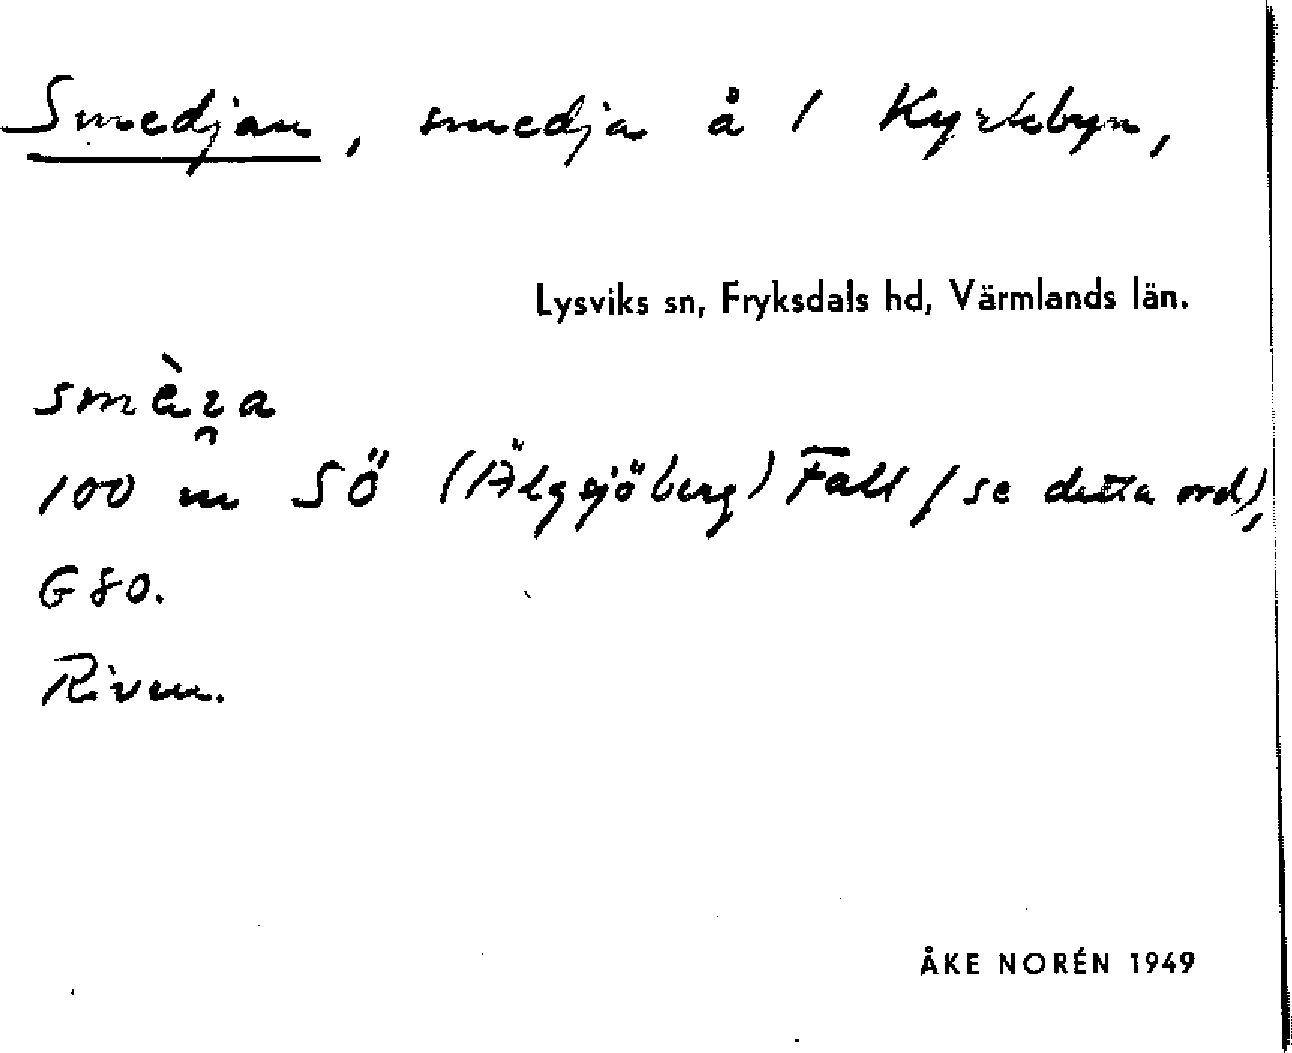 Smedjan, smedja å 1 Kyrkbyn,
Lysviks sn, Fryksdals hd, Värmlands län.
100 m SÖ (Älgsjöberg) Fall (se detta ord),
G80.
Riven.
ÅKE NORÉN 1949